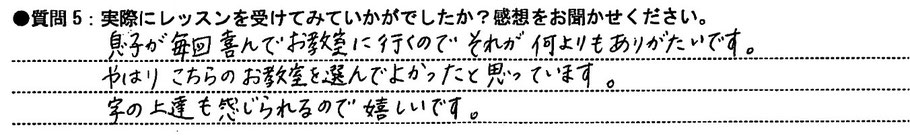 ●質問5：実際にレッスンを受けてみていかがでしたか？感想をお聞かせください。
息子が毎回喜んでお教室に行くのでそれが何よりもありがたいです。
やはりこちらのお教室を選んでよかったと思っています。
字の上達も感じられるので嬉しいです。